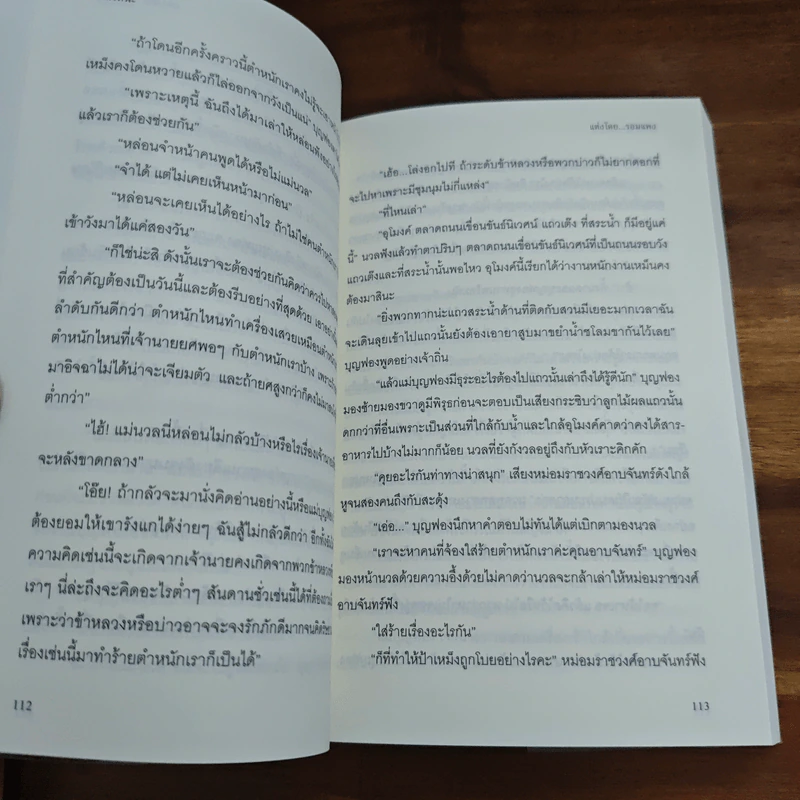 "ถ้าโดนอีกครั้งคราวนี้ตำหนักเราคงไม่รู้จะ
เหม็งคงโดนหวายแล้วก็ไล่ออกจากวังเป็นแน่" บุญฟอง
"เพราะเหตุนี้ ฉันถึงได้มาเล่าให้หล่อนฟังอย่าง
แล้วเราก็ต้องช่วยกัน"
"หล่อนจำหน้าคนพูดได้หรือไม่แม่นวล"
"จำได้ แต่ไม่เคยเห็นหน้ามาก่อน"
"หล่อนจะเคยเห็นได้อย่างไร ถ้าไม่ใช่คนตำหนัก
เข้าวังมาได้แค่สองวัน"
"ก็ใช่น่ะสิ ดังนั้นเราจะต้องช่วยกันคิดว่าควร
ที่สำคัญต้องเป็นวันนี้และต้องรีบอย่างที่สุดด้วย เอา
ลำดับกันดีกว่า ตำหนักไหนทำเครื่องเสวยเหมือนตำหนัก
ตำหนักไหนที่เจ้านายยศพอๆ กับตำหนักเราบ้าง เพราะ
มาอิจฉาไม่ได้น่าจะเจียมตัว และถ้ายศสูงกว่าก็คงไม่
ต่ำกว่า"
"ไฮ้! แม่นวลนี่หล่อนไม่กลัวบ้างหรือไรเรื่องเจ้านาย
จะหลังขาดกลาง"
"โอ๊ย! ถ้ากลัวจะมานั่งคิดอ่านอย่างนี้หรือแม่บุญฟอง
ต้องยอมให้เขารังแกได้ง่ายๆ ฉันสู้ไม่กลัวดีกว่า อีกทั้ง
ความคิดเช่นนี้จะเกิดจากเจ้านายคงเกิดจากพวกข้าหลวง
เราๆ นี่ล่ะถึงจะคิดอะไรต่ำๆ สันดานชั่วเช่นนี้ได้ที่ต้อง
เพราะว่าข้าหลวงหรือบ่าวอาจจะจงรักภักดีมากจนคิด
เรื่องเช่นนี้มาทำร้ายตำหนักเราก็เป็นได้"
112
แต่งโดย...รอมแพง
"เฮ้อ...โล่งอกไปที ถ้าระดับข้าหลวงหรือพวกบ่าวก็ไม่ยากดอกที่
จะไปหาเพราะมีชุมนุมไม่กี่แหล่ง"
"ที่ไหนเล่า"
"อุโมงค์ ตลาดถนนเขื่อนขันธ์นิเวศน์ แถวเต๊ง ที่สระน้ำ ก็มีอยู่แค่
นี้" นวลฟังแล้วทำตาปริบๆ ตลาดถนนเขื่อนขันธ์นิเวศน์ที่เป็นถนนรอบวัง
แถวเต๊งและที่สระน้ำนั้นพอไหว อุโมงค์นี้เรียกได้ว่างานหนักงานเหม็นคง
ต้องมาสินะ
"ยิ่งพวกทากน่ะแถวสระน้ำด้านที่ติดกับสวนมีเยอะมากเวลาฉัน
จะเดินลุยเข้าไปแถวนั้นยังต้องเอายาสูบมาขยำน้ำชโลมขากันไว้เลย"
บุญฟองพูดอย่างเจ้าถิ่น
"แล้วแม่บุญฟองมีธุระอะไรต้องไปแถวนั้นเล่าถึงได้รู้ดีนัก" บุญฟอง
มองซ้ายมองขวาดูมีพิรุธก่อนจะตอบเป็นเสียงกระซิบว่าลูกไม้ผลแถวนั้น
ดกกว่าที่อื่นเพราะเป็นส่วนที่ใกล้กับน้ำและใกล้อุโมงค์คาดว่าคงได้สาร-
อาหารไปบ้างไม่มากก็น้อย นวลที่ยังกังวลอยู่ถึงกับหัวเราะคิกคัก
"คุยอะไรกันท่าทางน่าสนุก" เสียงหม่อมราชวงศ์อาบจันทร์ดังใกล้
หูจนสองคนถึงกับสะดุ้ง
"เอ่อ..." บุญฟองนึกหาคำตอบไม่ทันได้แต่เบิกตามองนวล
"เราจะหาคนที่จ้องใส่ร้ายตำหนักเราค่ะคุณอาบจันทร์" บุญฟอง
มองหน้านวลด้วยความอึ้งด้วยไม่คาดว่านวลจะกล้าเล่าให้หม่อมราชวงศ์
อาบจันทร์ฟัง
"ใส่ร้ายเรื่องอะไรกัน"
"ก็ที่ทำให้ป้าเหม็งถูกโบยอย่างไรคะ" หม่อมราชวงศ์อาบจันทร์ฟัง
113